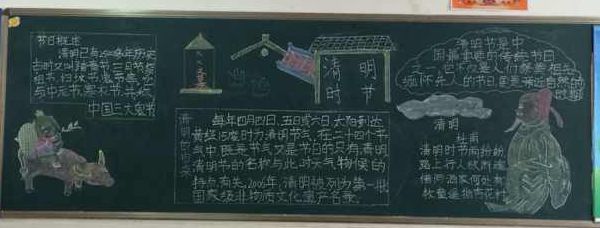 节日概述
清明已有2500多年历史
古时又叫踏青节三月节祭
祖节扫坟节鬼节等
与中元节寒衣节并称
中国三大鬼节
清明
时节
清明的由来
每年四月四日、五日或六日太阳到达
黄经15度时为清明节气。在二十四个节
气中既是节气又是节日的只有清明
清明节的名称与此时天气物候的
特点有关。2006年,清明被列为第一批
国家级非物质文化遗产名录。
清明节是中
国最重要的传统节日
之一
缅怀先人的节日更是亲近自然的
时期
清明
杜甫
清明时节雨纷纷
路上行人欲断魂
借问酒家何处有
牧童遥指杏花村